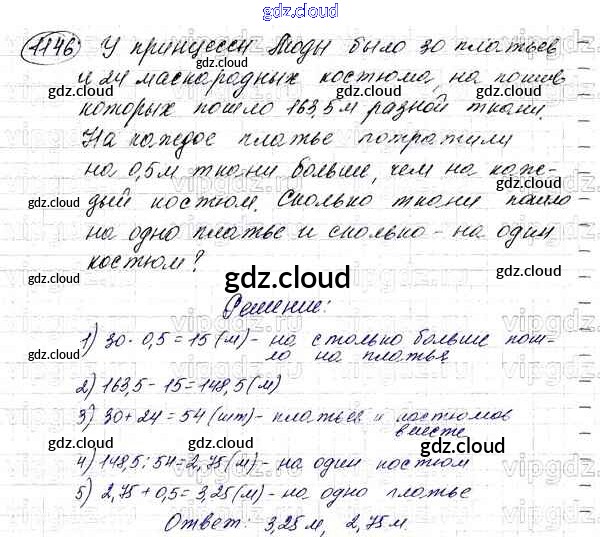 gdz.cloud
1146) У принцессы Моды было 30 платьев
gdz.cloud gdz.cloud
и 24 маскарадных костюма, на пошив
gdz.cloud gdz.cloud gdz.cloud
которых пошло 163,5 м разной ткани.
На каждое платье потратили
gdz.cloud gdz.cloud
на 0,5 м ткани больше, чем на каж-
gdz.cloud
дый костюм. Сколько ткани пошло
gdz.cloud
на одно платье и сколько - на один
gdz.cloud gdz.cloud
костюм?
gdz.cloud
Решение:
gdz.cloud gdz.cloud
1) 30 · 0,5 = 15 (м) - на столько больше пош-
ло на платья
gdz.cloud gdz.cloud
2) 163,5 - 15 = 148,5 (м)
gdz.cloud
3) 30 + 24 = 54 (шт) - платьев и костюмов
вместе
gdz.cloud gdz.cloud gdz.cloud
4) 148,5 : 54 = 2,75 (м) - на один костюм
gdz.cloud
5) 2,75 + 0,5 = 3,25 (м) - на одно платье
gdz.cloud
Ответ: 3,25 м, 2,75 м
gdz.cloud